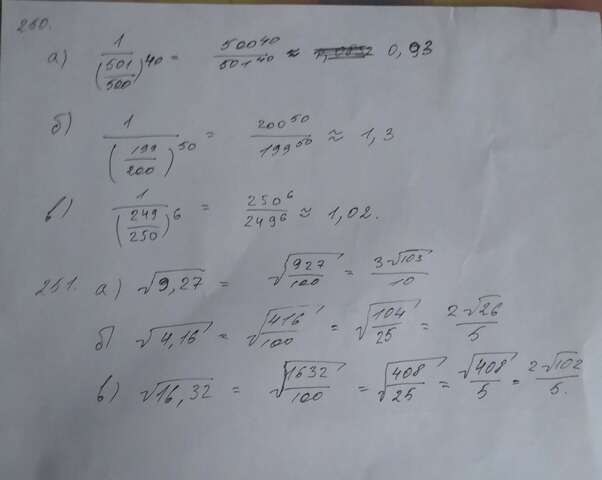 250.
а) 1/(501/500)^40 = 500^40/501^40 ≈ 0,93
б) 1/(199/200)^50 = 200^50/199^50 ≈ 1,3
в) 1/(249/250)^6 = 250^6/249^6 ≈ 1,02.
251. а) √9,27 = √(927/100) = 3√103/10
б) √4,16 = √(416/100) = √(104/25) = 2√26/5
в) √16,32 = √(1632/100) = √(408/25) = √408/5 = 2√102/5.